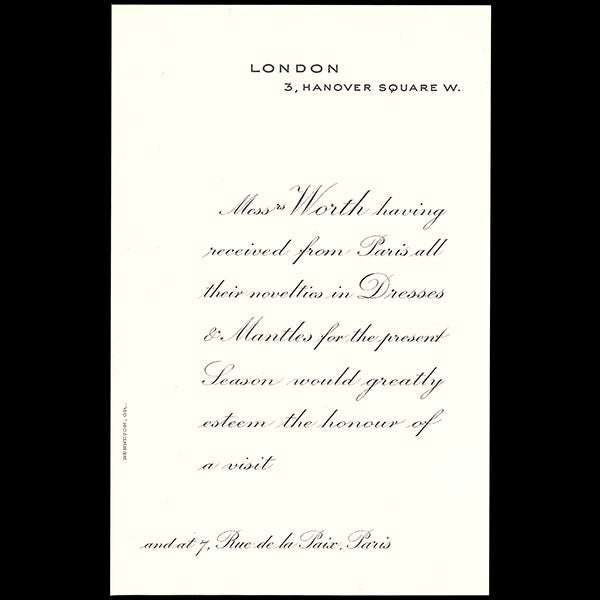 LONDON
3, HANOVER SQUARE W.
Messrs Worth having
received from Paris all
their novelties in Dresses
& Mantles for the present
Season would greatly
esteem the honour of
a visit
BENNETON, GR.
and at 7, Rue de la Paix, Paris